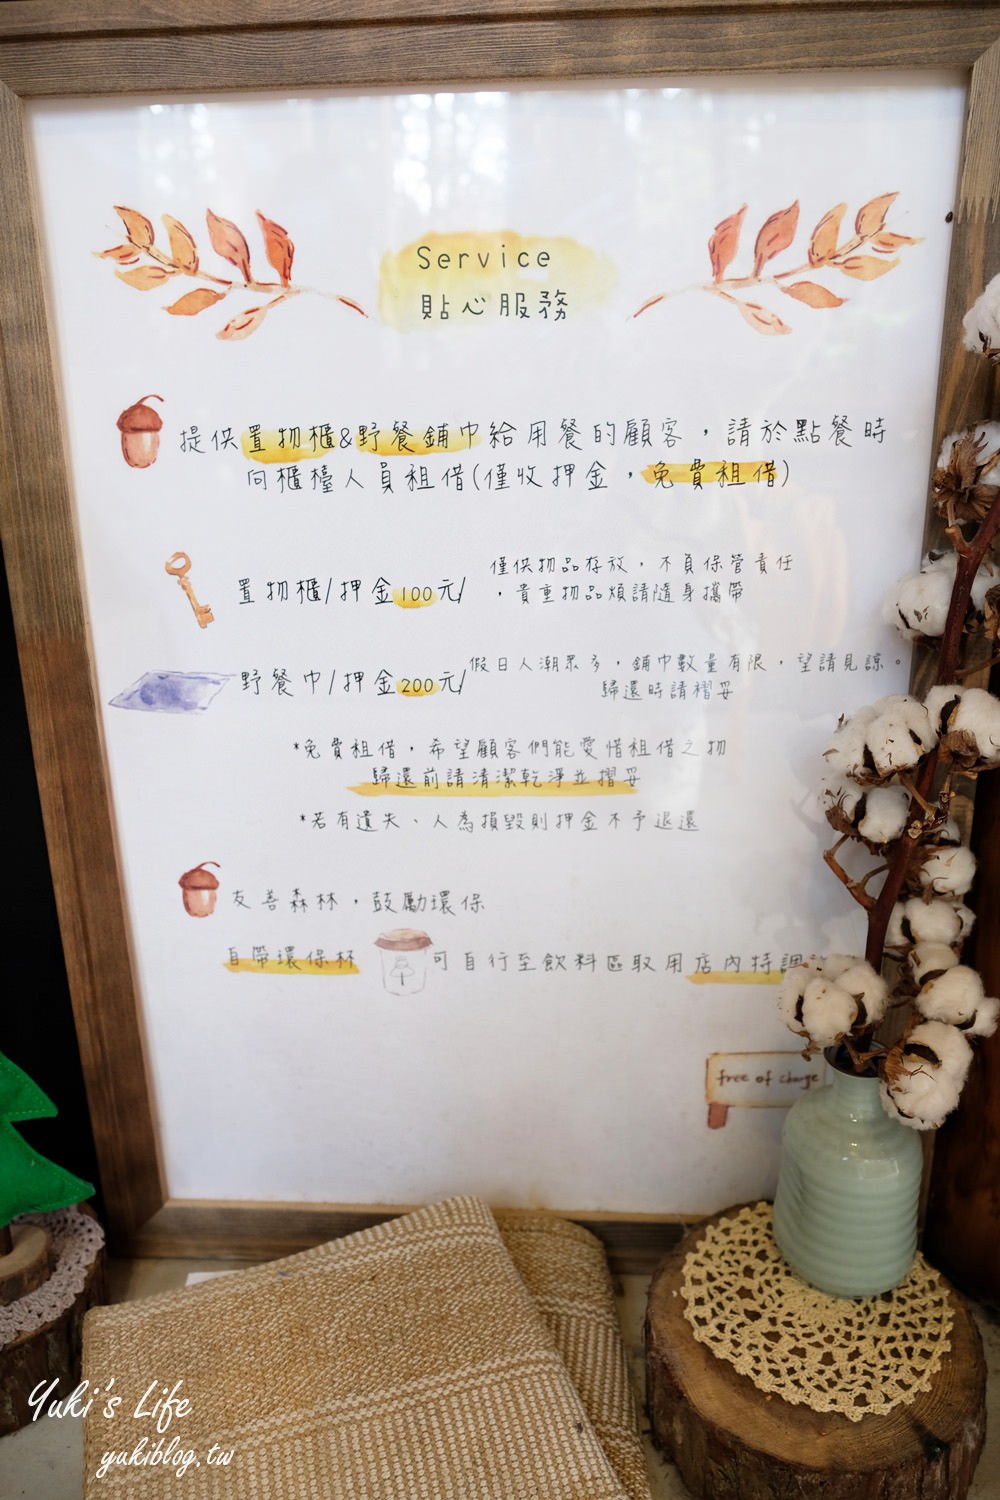 Service
貼心服務
提供置物櫃&野餐鋪巾給用餐的顧客，請於點餐時
向櫃檯人員租借(僅收押金，免費租借)
僅供物品存放，不負保管責任
置物櫃/押金100元/
，貴重物品煩請隨身攜帶
假日人潮眾多，鋪巾數量有限，望請見諒。
野餐巾/押金200元/
歸還時請褶妥
*免費租借，希望顧客們能愛惜租借之物
歸還前請清潔乾淨並摺妥
*若有遺失、人為損毀則押金不予退還
友善森林，鼓勵環保
自帶環保杯 可自行至飲料區取用店內特調
free of charge
Yuki's Life
yukiblog.tw